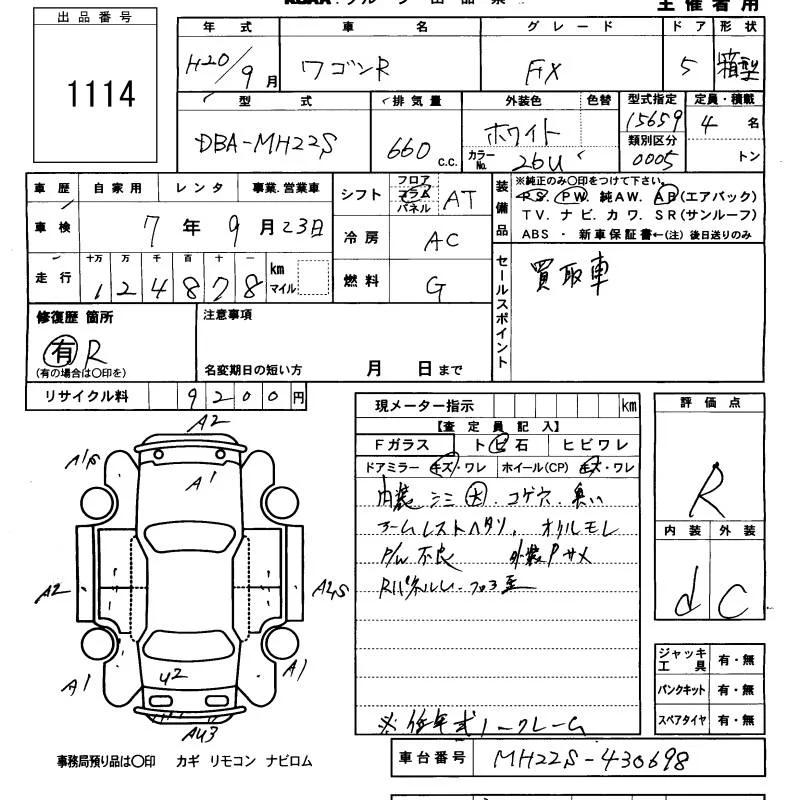 主催者用
出品番号
1114
年式 車名 グレード ドア 形状
H20/9月 ワゴンR FX 5 箱型
型式 排気量 外装色 色替 型式指定 定員・積載
DBA-MH22S 660 c.c. ホワイト 15659 4 名
カラーNo. 26U 類別区分 0005 トン
車歴 自家用 レンタ 事業.営業車
車検 7年9月23日
走行 十万 万 千 百 十 一
124878 km マイル
シフト フロア コラム パネル AT
冷房 AC
燃料 G
装備品
※純正のみ〇印をつけて下さい。
PS. PW. 純AW. AB(エアバック)
TV. ナビ. カワ. SR(サンルーフ)
ABS ・ 新車保証書←(注) 後日送りのみ
セールスポイント
買取車
修復歴 箇所
有 R
(有の場合は〇印を)
注意事項
名変期日の短い方 月 日まで
リサイクル料 9200円
A2
A1S
A1
A2
A2S
A1
U2
A1
AU3
現メーター指示 km
【査定員記入】
Fガラス トビ石 ヒビワレ
ドアミラー キズ・ワレ ホイール(CP) キズ・ワレ
内装 シミ大. コゲ穴. 臭い
アームレストヘタリ, オイルモレ
P/W 不良 外装Pサメ
※低年式ノークレーム
評価点
R
内装 外装
d C
ジャッキ工具 有・無
パンクキット 有・無
スペアタイヤ 有・無
事務局預り品は〇印 カギ リモコン ナビロム
車台番号 MH22S-430698